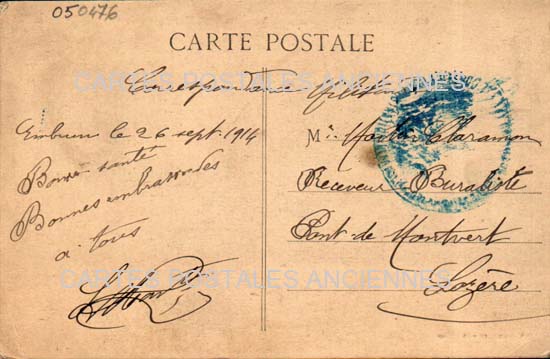 050476
CARTE POSTALE
CARTES POSTALES ANCIENNES
Correspondance Militaire
Embrun le 26 sept. 1914
Bonne santé
Bonnes embrassades
à tous
Mr
Receveur Buraliste
Pont-de-Montvert
Lozère
CARTES POSTALES ANCIENNES